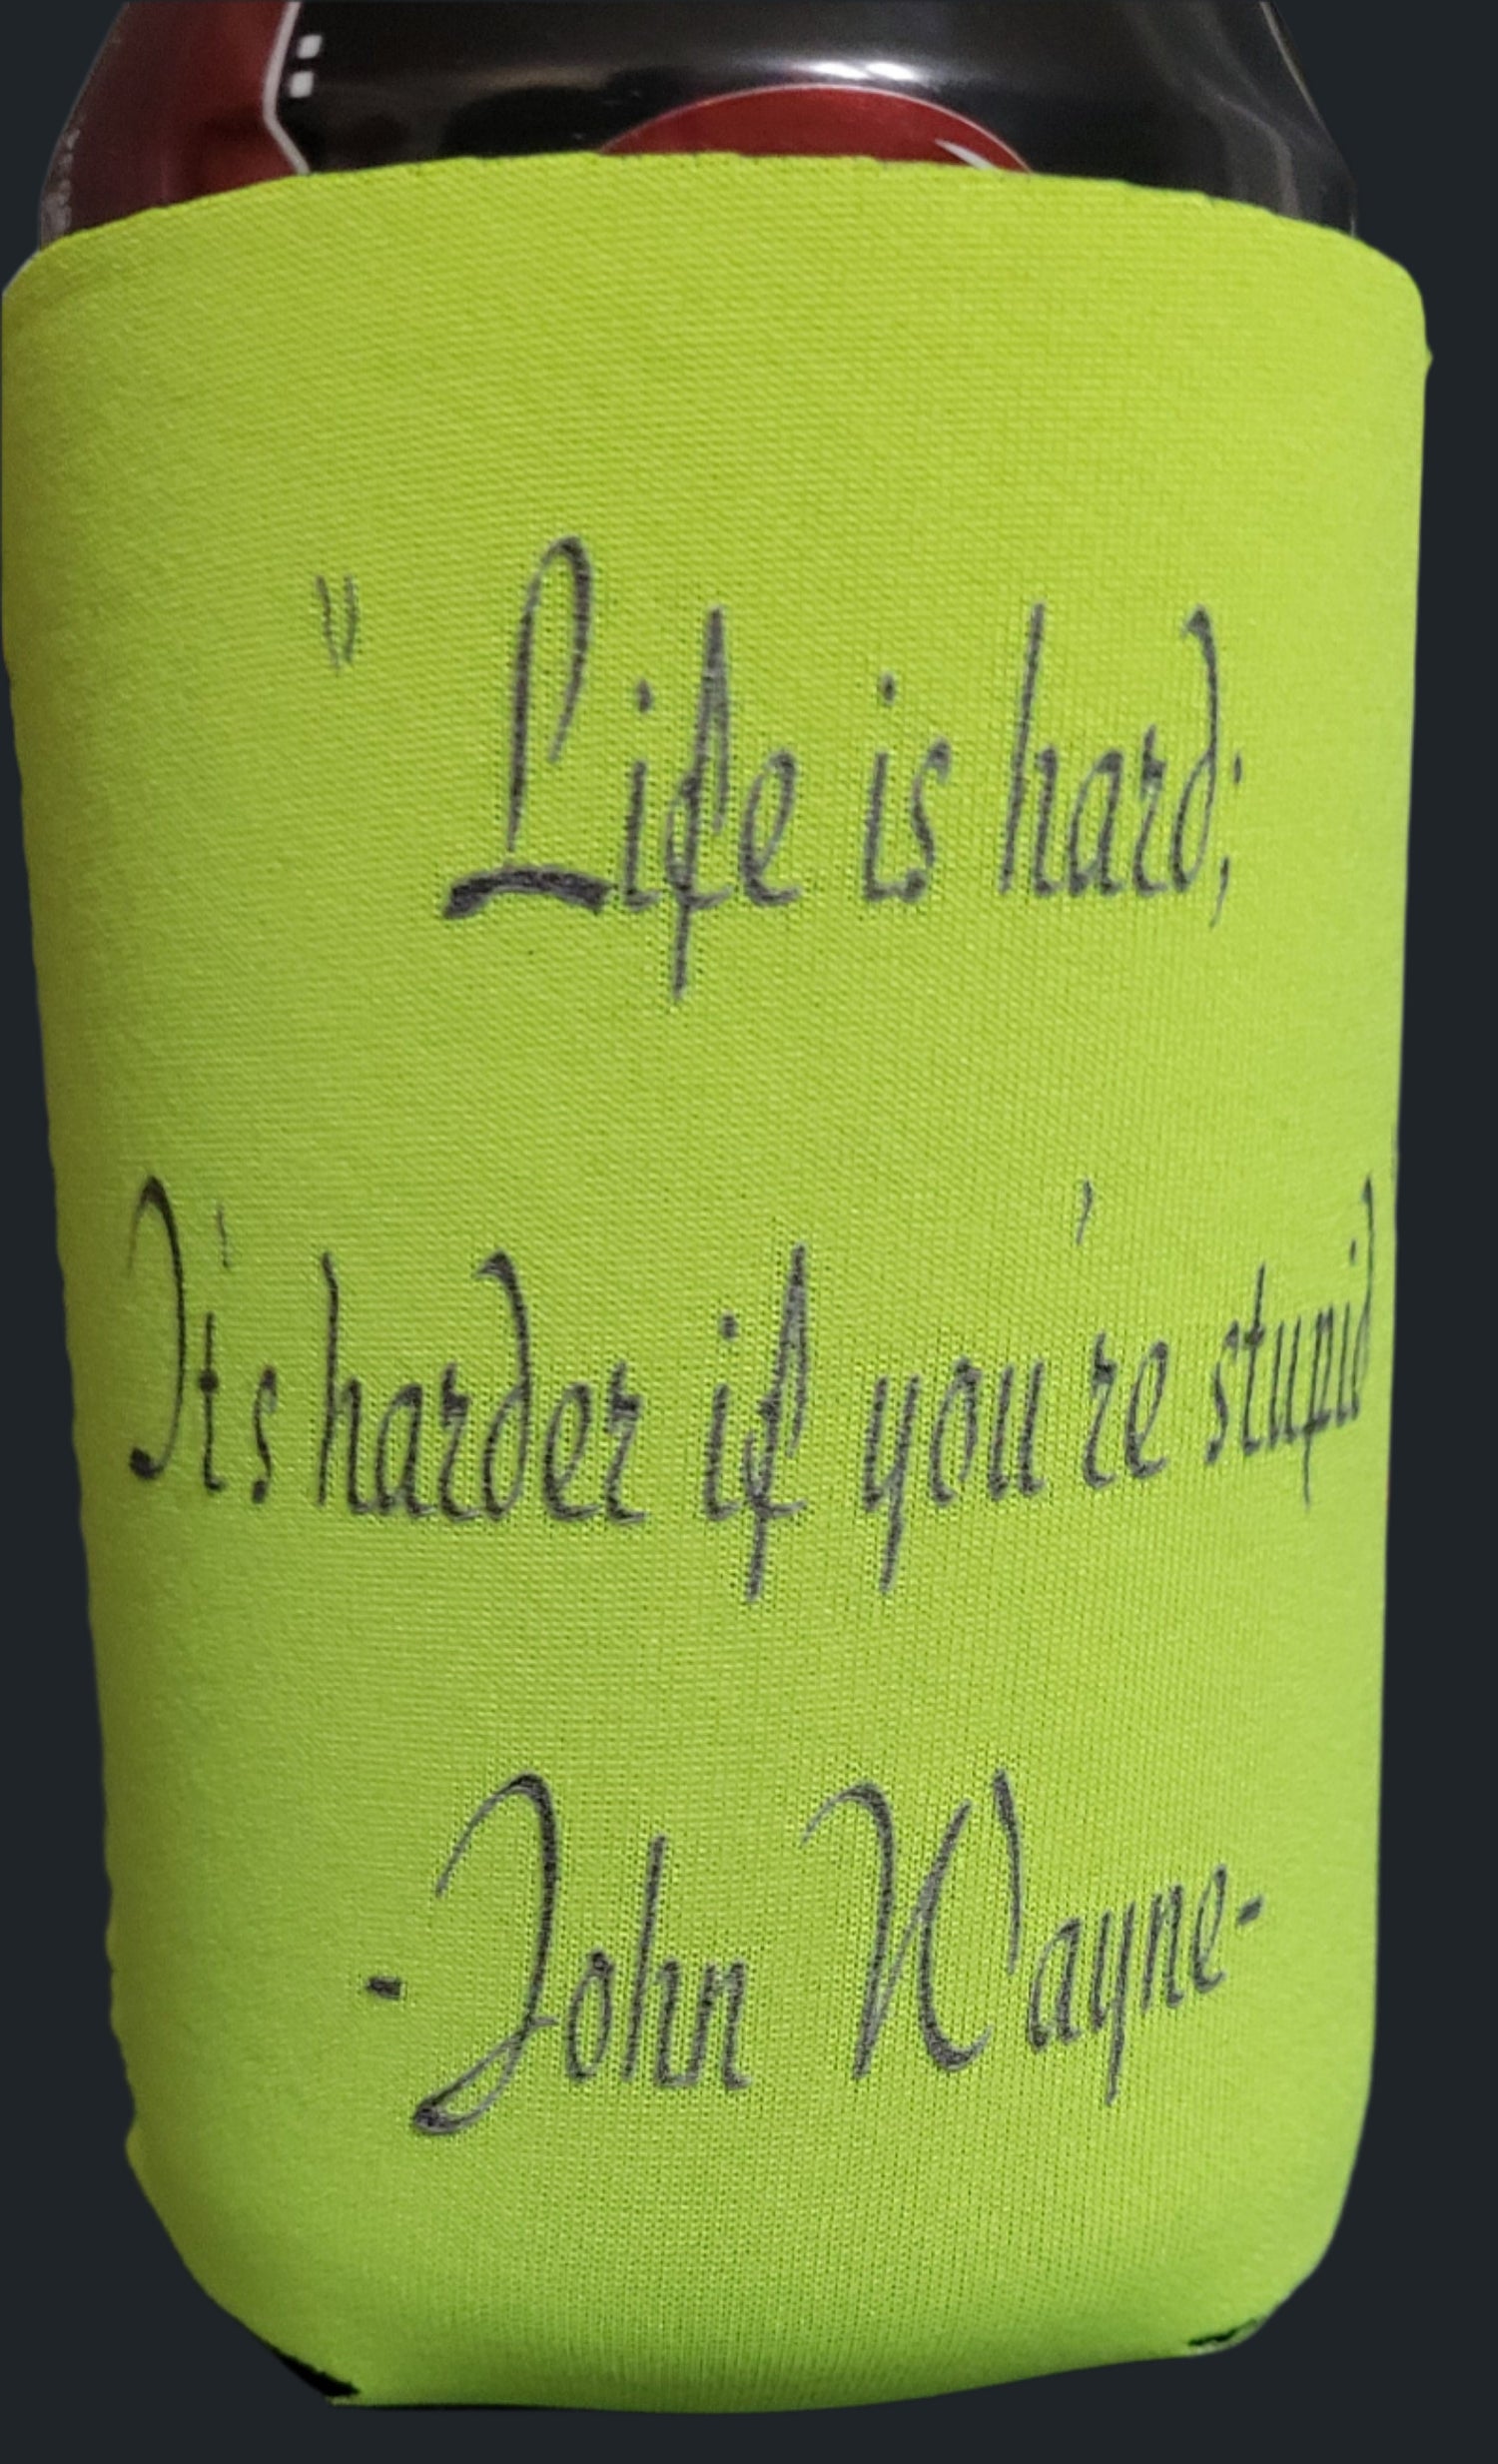 " Life is hard;
It's harder if you're stupid"
-John Wayne-